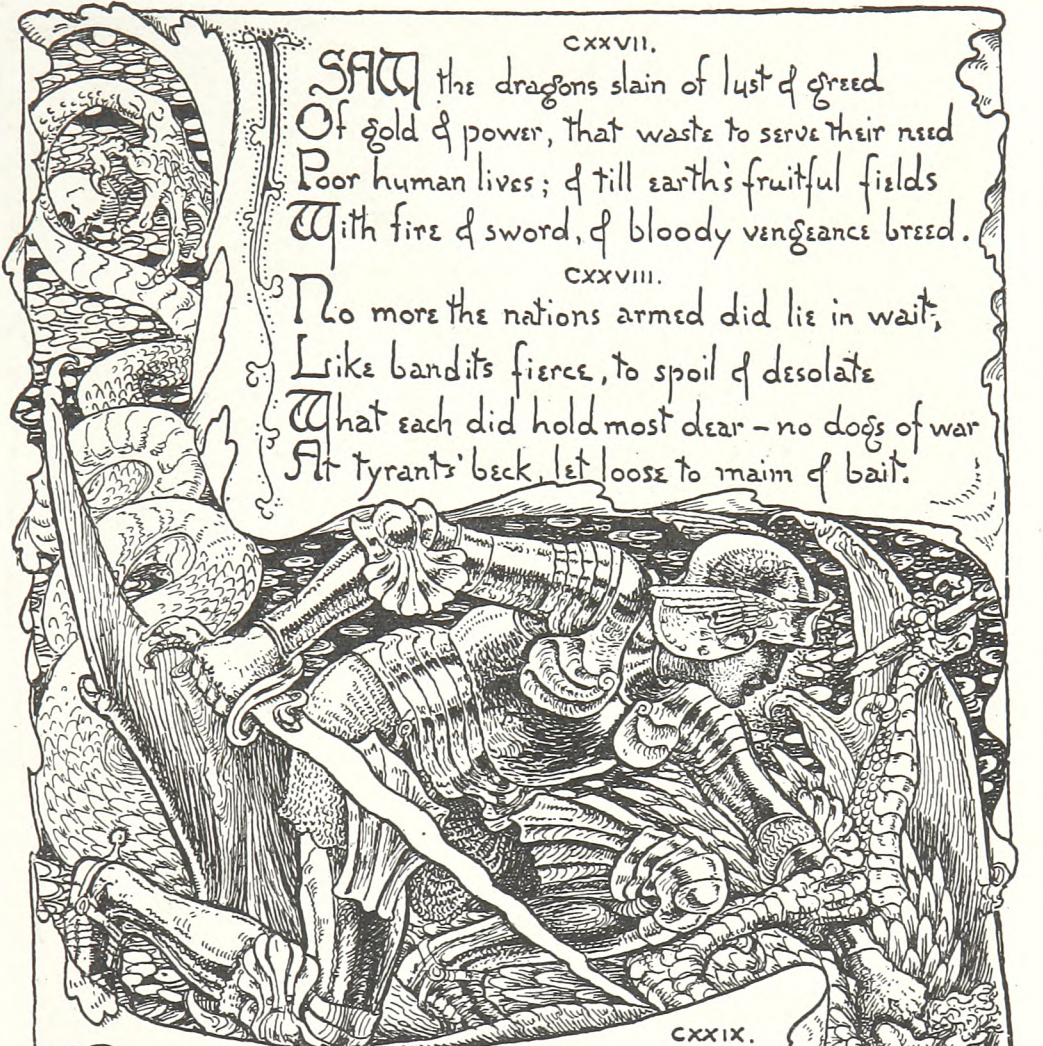 CXXVII.
I SAW the dragons slain of lust & greed
Of gold & power, that waste to serve their need
Poor human lives; & till earth's fruitful fields
With fire & sword, & bloody vengeance breed.
CXXVIII.
No more the nations armed did lie in wait,
Like bandits fierce, to spoil & desolate
What each did hold most dear – no dogs of war
At tyrants' beck, let loose to maim & bait.
CXXIX.